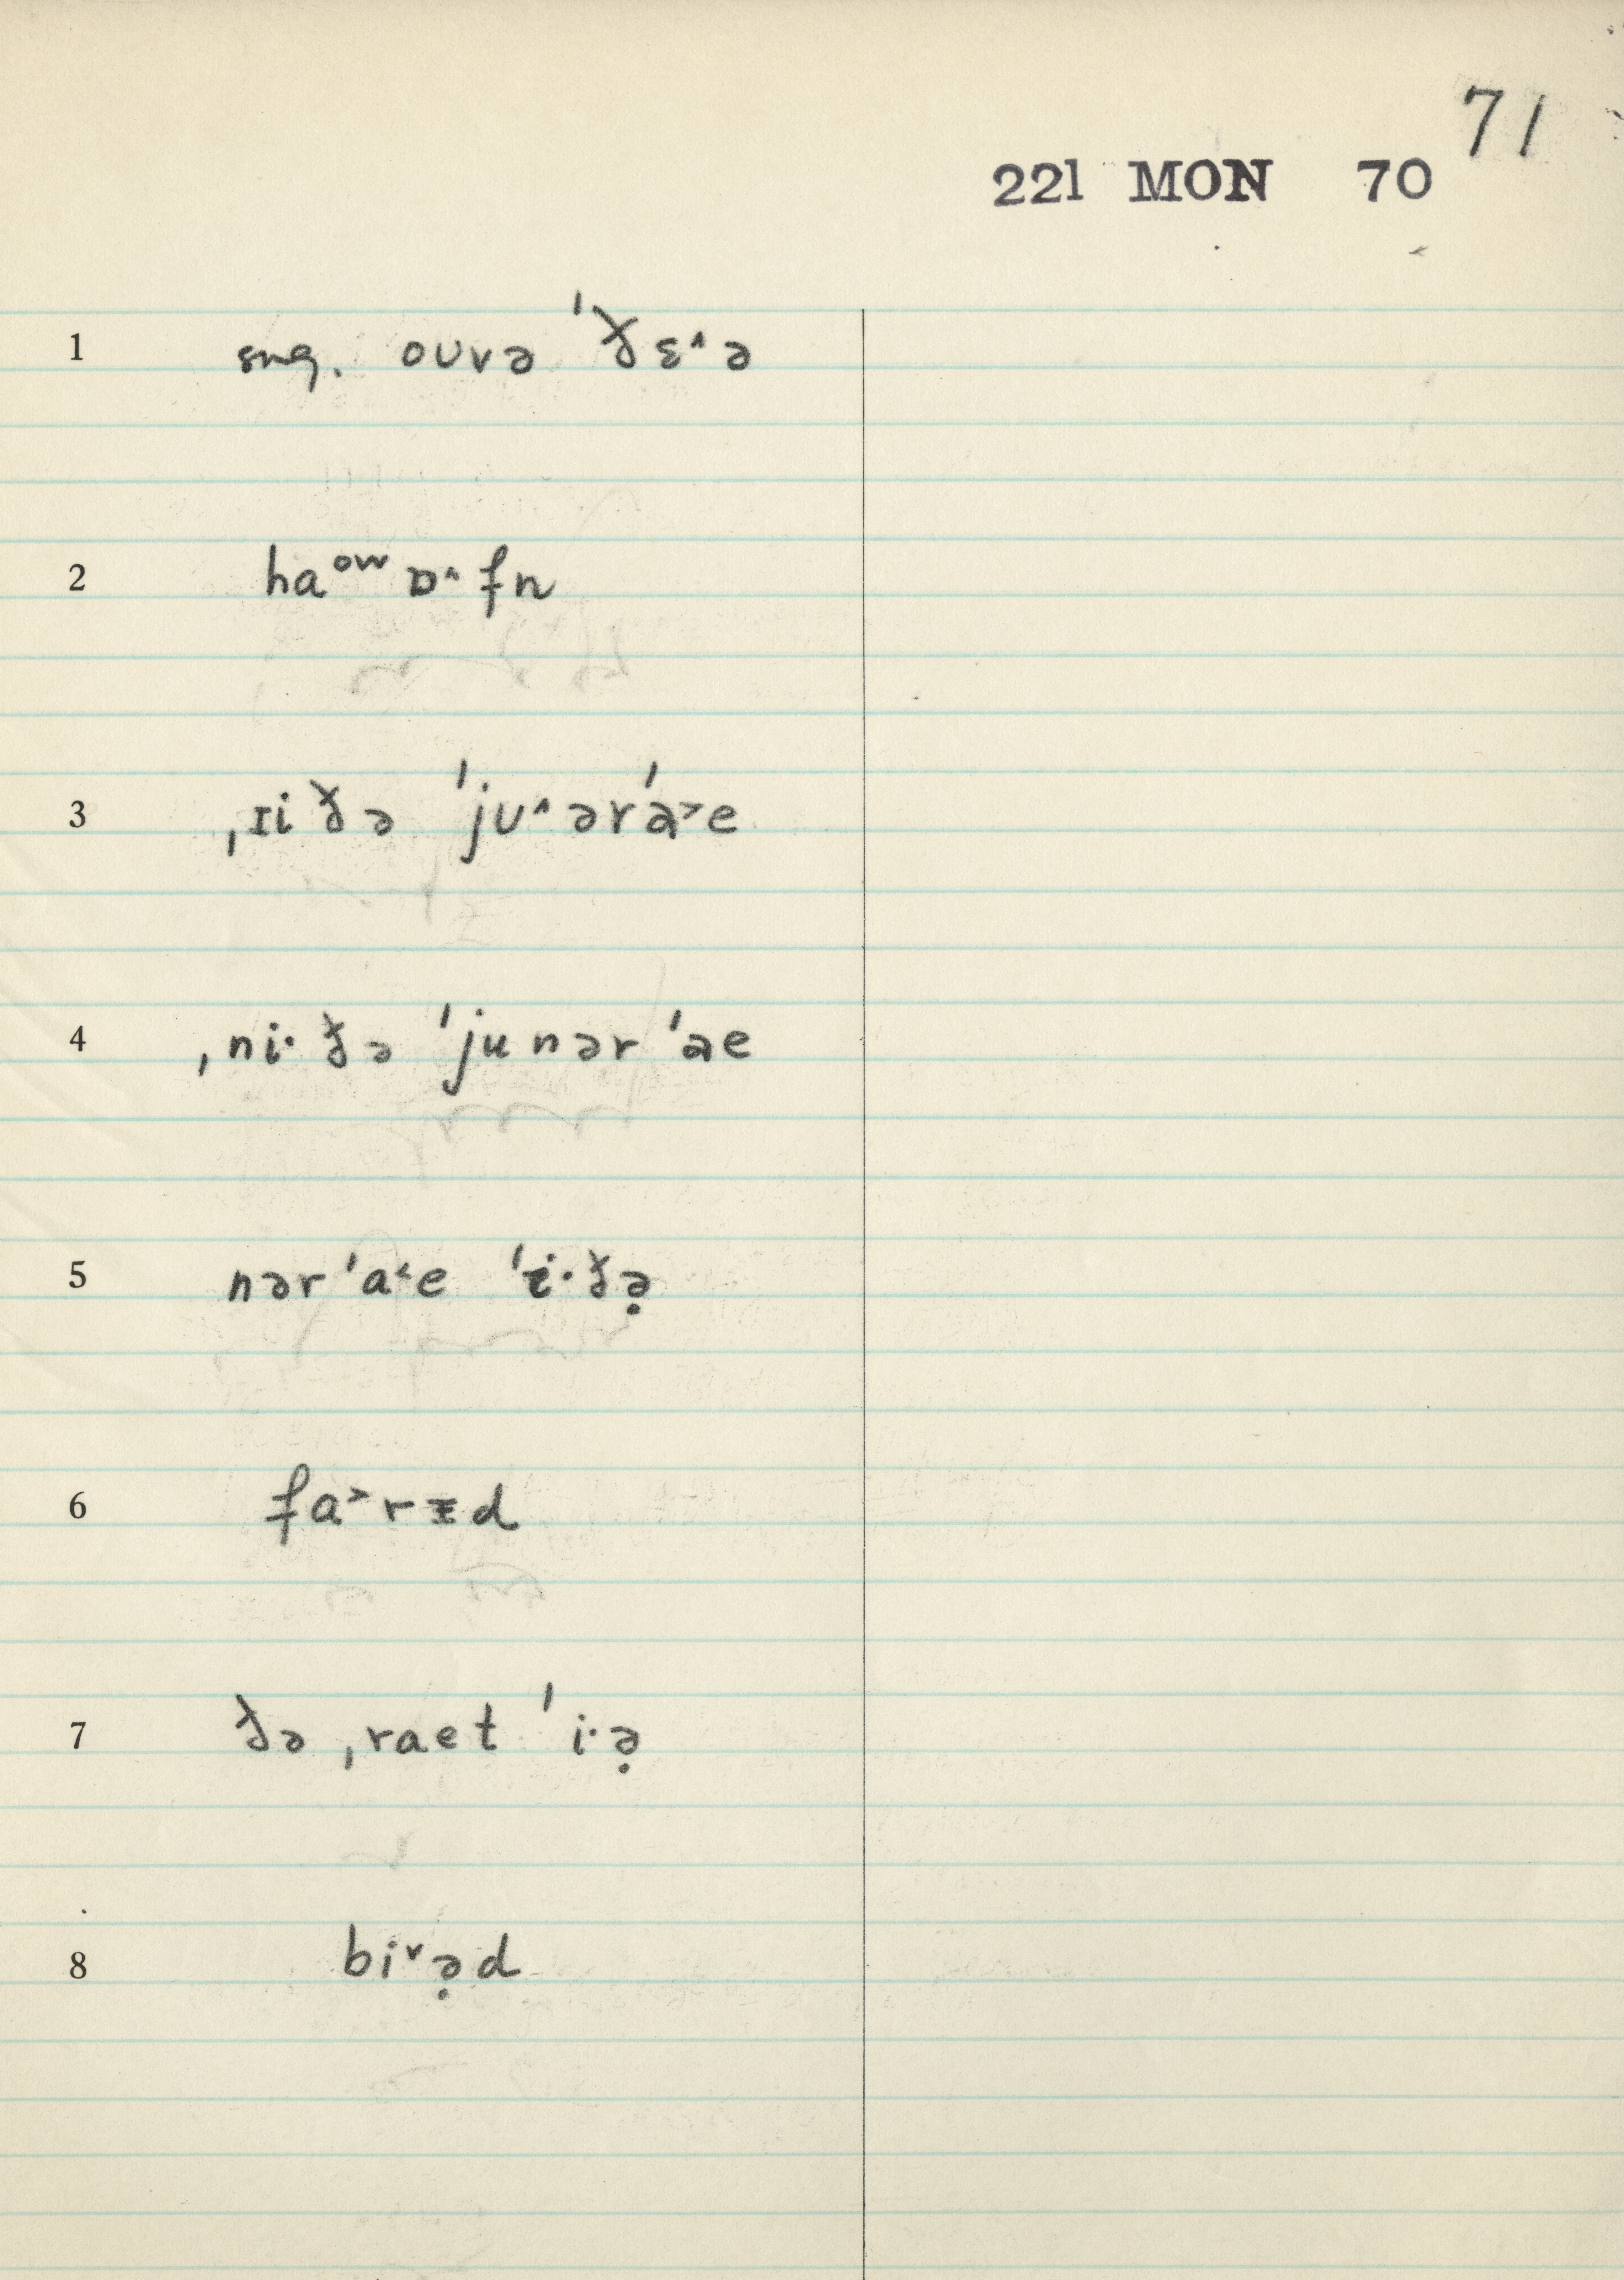 71
221 MON 70
1 sug. oʊvə ˈðɛ˄ə
2 haᵒʷ ɒ˄fn
3 ˌɪi ðə ˈjʊ˄ərˈa˃e
4 ˌni· ðə ˈju nər ˈae
5 nər ˈa˂e ˈi·ðə̣
6 fa˃rɪd
7 ðə ˌraet ˈi·ə̣
8 bi˅ə̣d